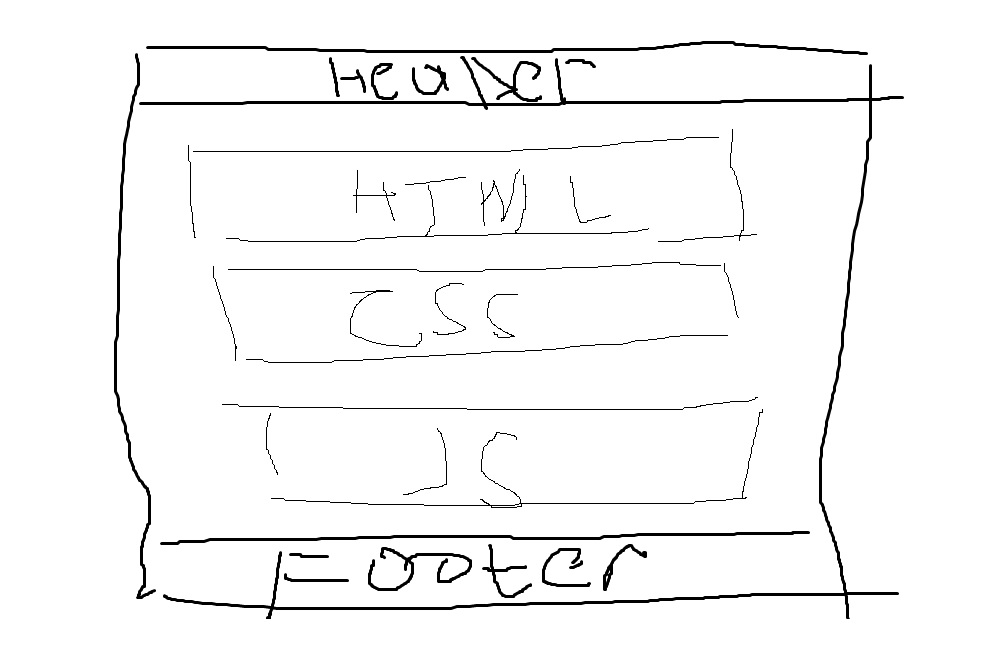 Header
HTML
CSS
JS
Footer